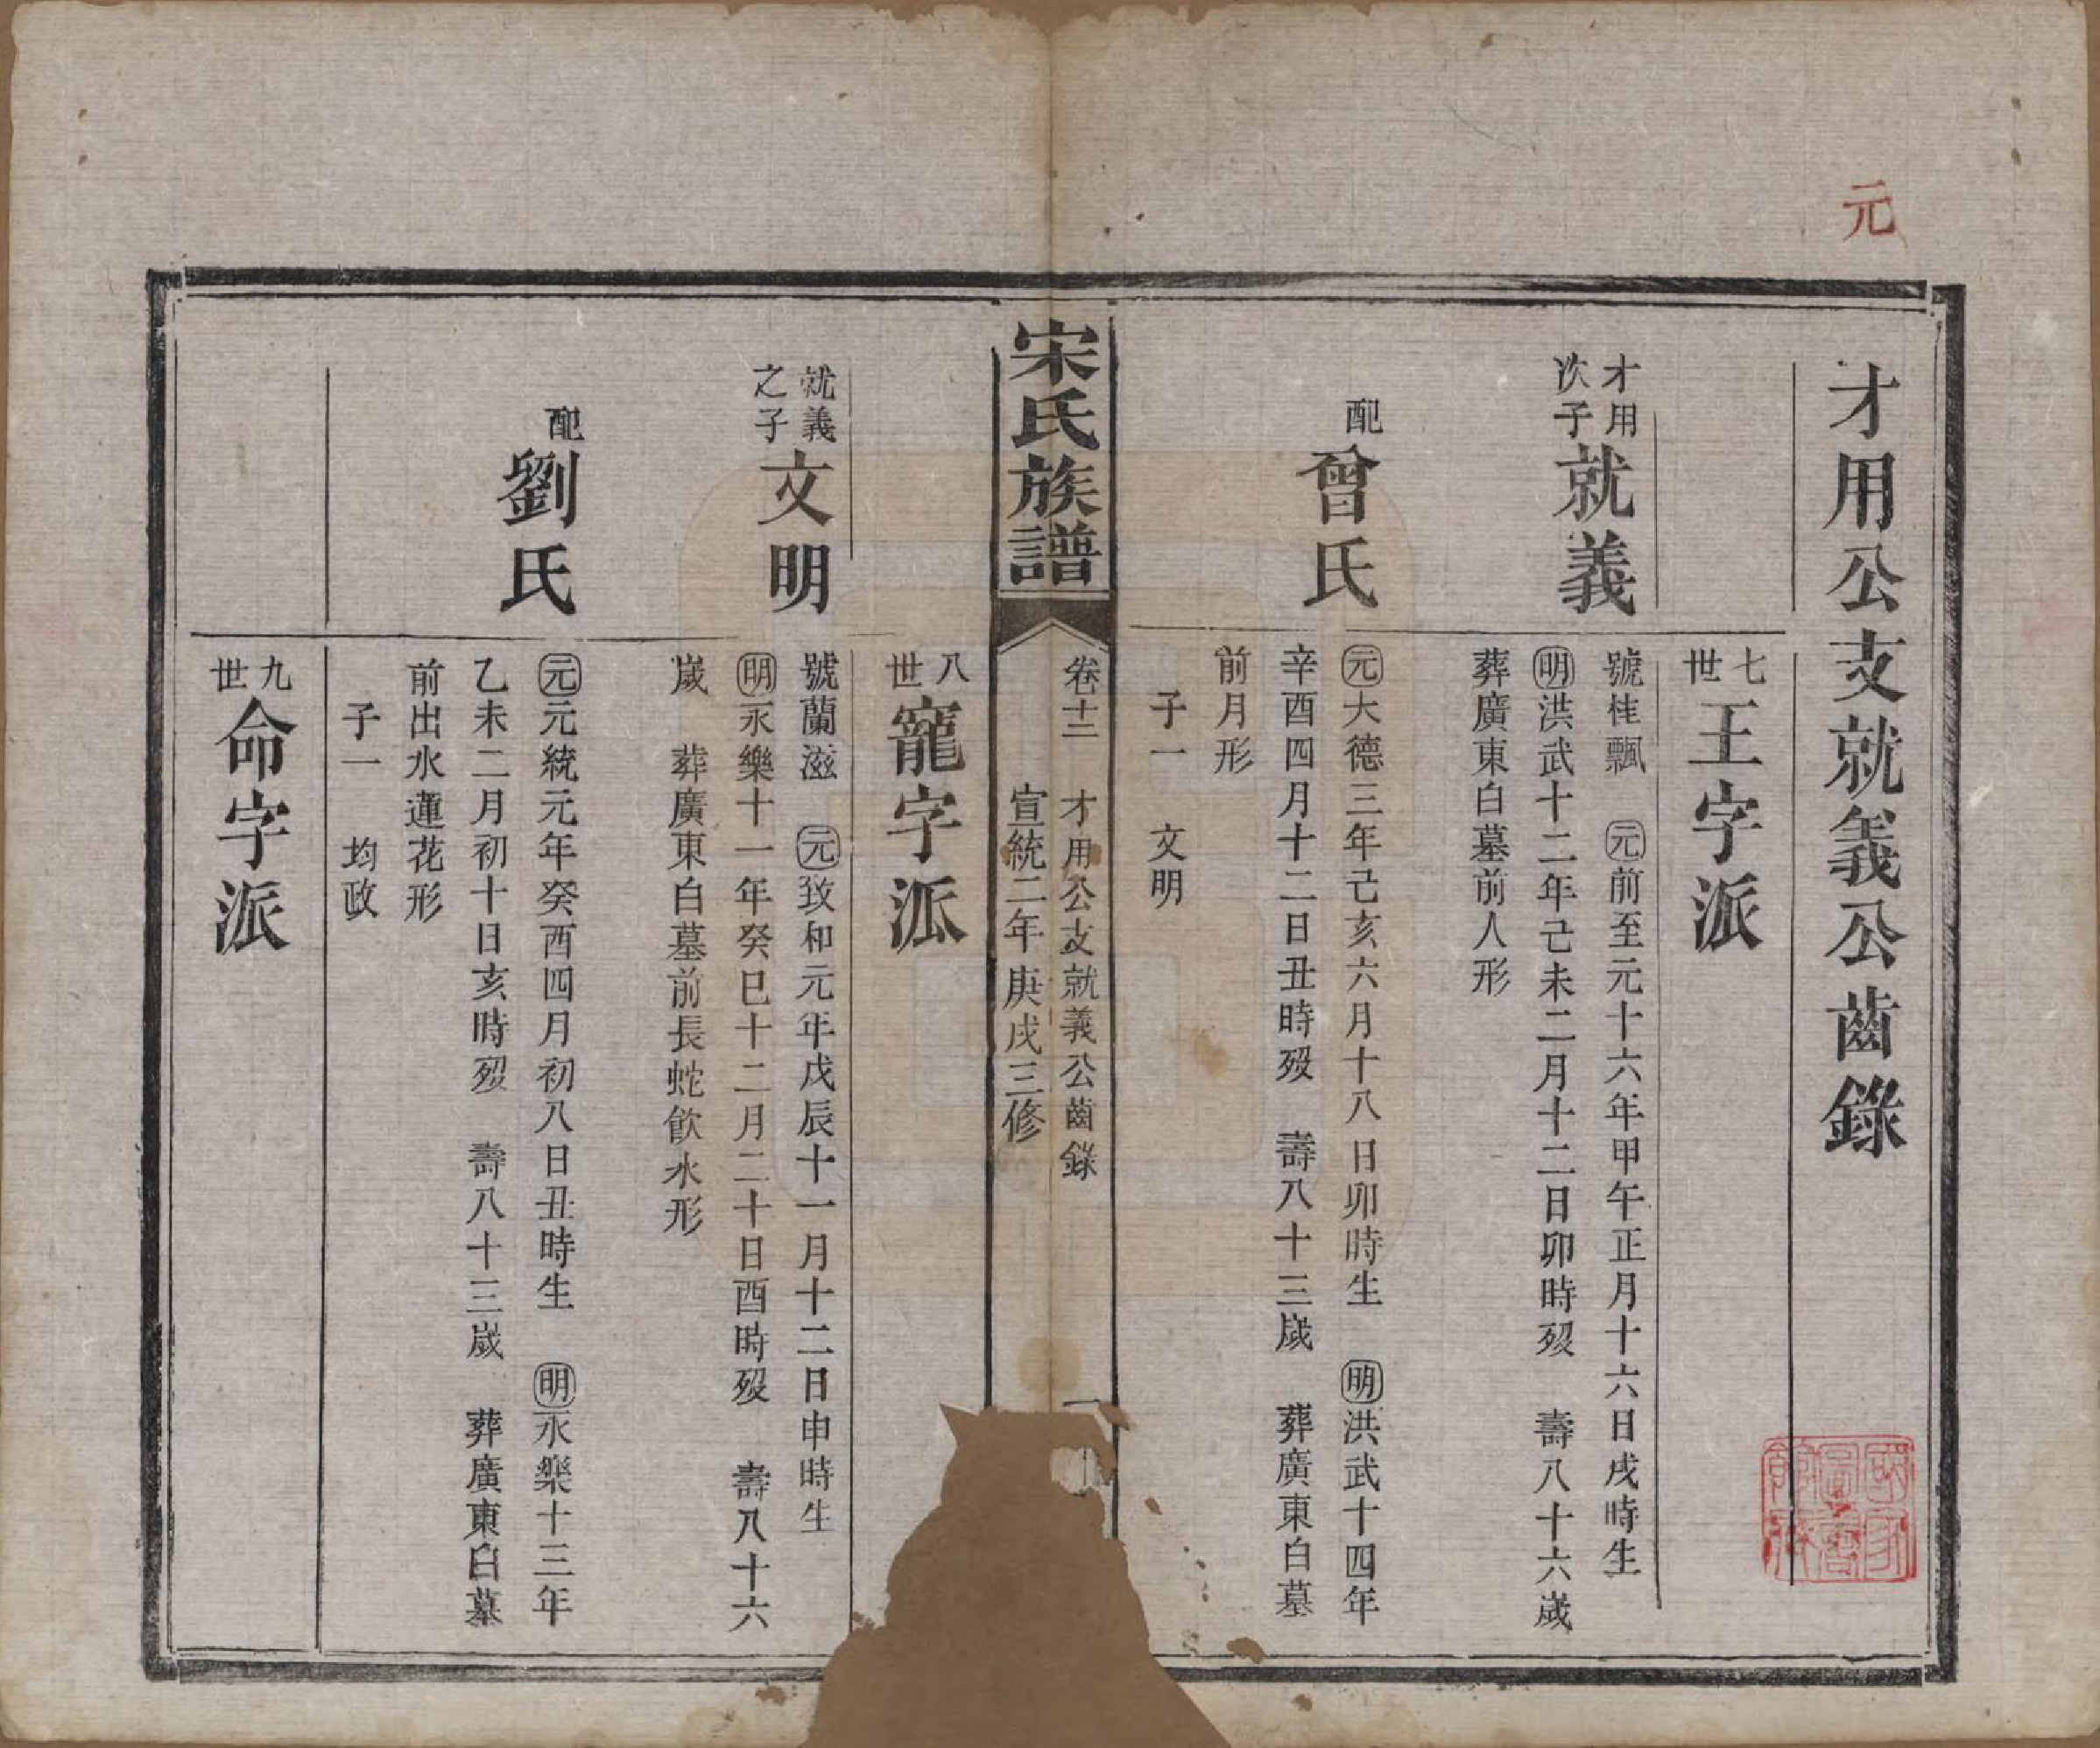 元
才用公支就義公齒錄
七世王字派
才用次子就義
號桂飄　元前至元十六年甲午正月十六日戌時生
明洪武十二年己未二月十二日卯時歿　壽八十六歲
葬廣東白墓前人形
配曾氏
元大德三年己亥六月十八日卯時生　明洪武十四年
辛酉四月十二日丑時歿　壽八十三歲　葬廣東白墓
前月形
子一　文明
宋氏族譜
卷十二　才用公支就義公齒錄　一
宣統二年庚戌三修
八世寵字派
就義之子文明
號蘭滋　元致和元年戊辰十一月十二日申時生
明永樂十一年癸巳十二月二十日酉時歿　壽八十六
歲　葬廣東白墓前長蛇飲水形
配劉氏
元元統元年癸酉四月初八日丑時生　明永樂十三年
乙未二月初十日亥時歿　壽八十三歲　葬廣東白墓
前出水蓮花形
子一　均政
九世命字派